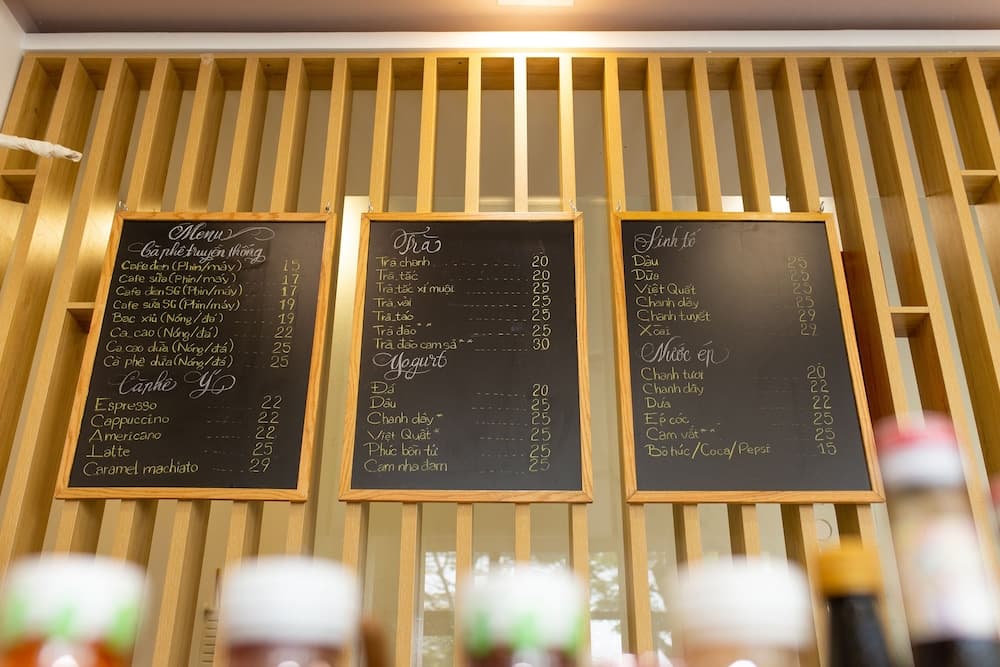 Menu
Cà phê truyền thống
Cafe đen (Phin/máy) 15
Cafe sữa (Phin/máy) 17
Cafe đen SG (Phin/máy) 17
Cafe sữa SG (Phin/máy) 19
Bạc xỉu (Nóng/đá) 19
Ca cao (Nóng/đá) 22
Ca cao dừa (Nóng/đá) 25
Cà phê dừa (Nóng/đá) 25
Cà phê Ý
Espresso 22
Cappuccino 22
Americano 22
Latte 25
Caramel machiato 29
Trà
Trà chanh 20
Trà tắc 20
Trà tắc xí muội 25
Trà vải 25
Trà táo 25
Trà đào** 25
Trà đào cam sả** 30
Yogurt
Đá 20
Dâu 25
Chanh dây* 25
Việt Quất* 25
Phúc bồn tử 25
Cam nha đam 25
Sinh tố
Dâu 25
Dừa 25
Việt Quất 25
Chanh dây 25
Chanh tuyết 29
Xoài 29
Nước ép
Chanh tươi 20
Chanh dây 22
Dưa 22
Ép cóc 25
Cam vắt** 25
Bò húc/Coca/Pepsi 15